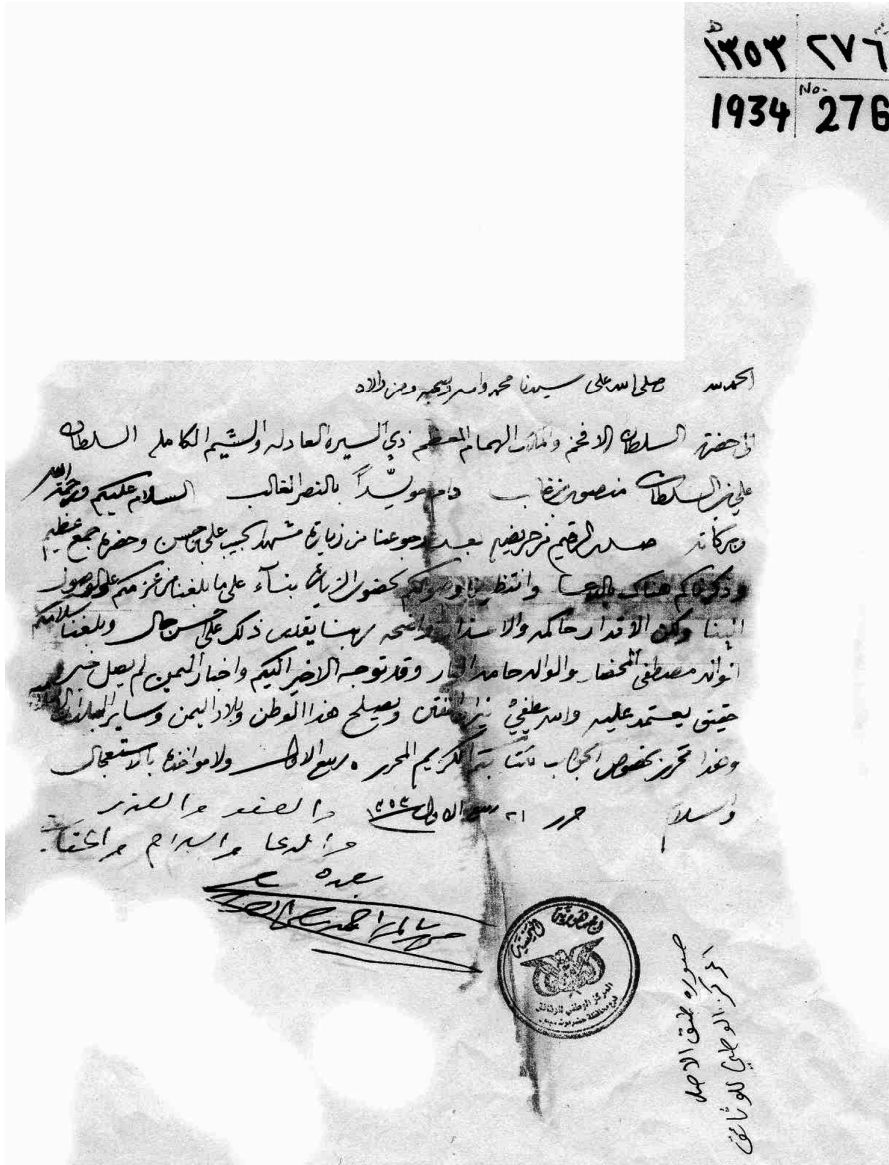 ١٣٥٣ ٢٧٦
1934 No. 276
الحمد لله وصلى الله على سيدنا محمد وآله وصحبه ومن والاه
الى حضرة السلطان الافخم والملك الهمام المعظم ذي السيرة العادله والشيم الكامله السلطان
علي بن السلطان منصور بن غالب دام مويّداً بالنصر الغالب السلام عليكم ورحمة الله
وبركاته صدرت من تريم بعد رجوعنا من زيارة مشهد الحبيب علي بن حسن وحضره جمع عظيم
وذكرناكم هناك بالدعا وانتظرنا وصولكم لحضور الزيارة بنآء على ما بلغنا من عزمكم على الوصول
الينا ولكن الاقدار حاكمه والاعذار واضحه ربنا يقدر ذلك على احسن حال وبلغنا سلامكم
الوالد مصطفى المحضار والوالد حامد البار وقد توجه الاخير اليكم واخبار اليمن لم يصل خبر
حقيقي يعتمد عليه والله يطفي نيران الفتن ويصلح هذا الوطن وبلاد اليمن وساير البلدان
وهذا تحرير بخصوص الجواب كتابكم الكريم المحرر ربيع الاول ولا مواخذة بالاستعجال
والسلام حرر ٢١ ربيع الاول ١٣٥٣ والعفو والعذر
والدعا والسلام
المركز الوطني للوثائق
صوره طبق الاصل
المركز الوطني للوثائق